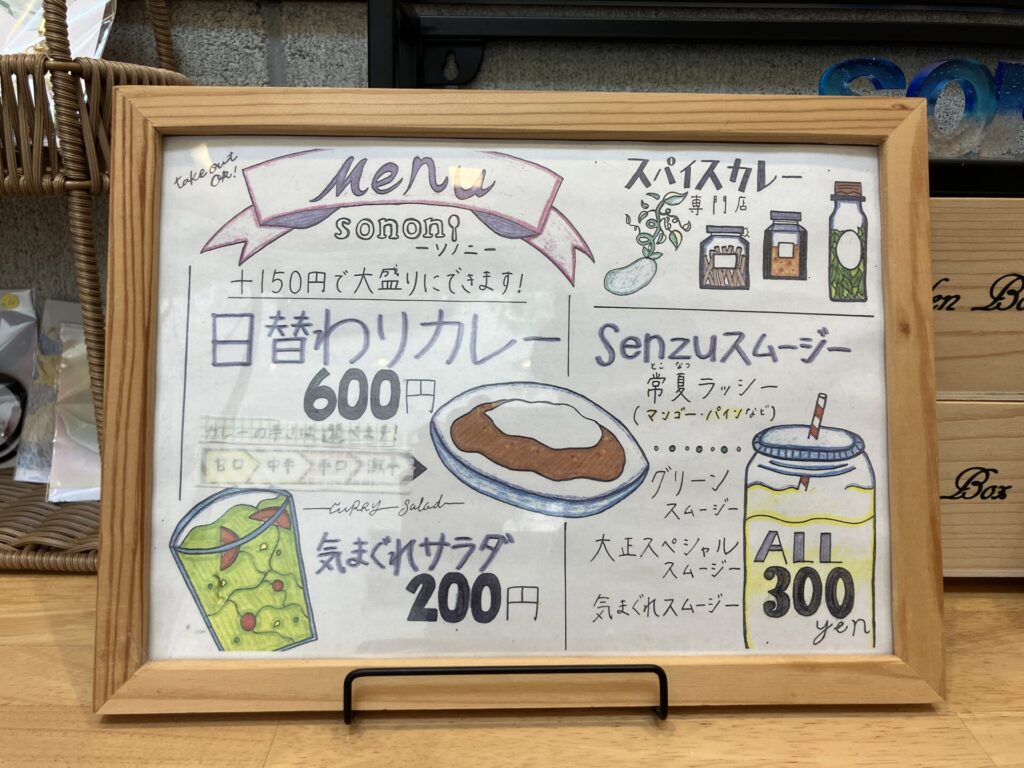 take out OK!
Menu
sononi
ーソノニー
+150円で大盛りにできます!
日替わりカレー
600円
カレーの辛さは選べます!
甘口 中辛 辛口 激辛
CURRY Salad
気まぐれサラダ
200円
スパイスカレー
専門店
Senzuスムージー
とこ なつ
常夏ラッシー
(マンゴー・パインなど)
グリーン
スムージー
大正スペシャル
スムージー
気まぐれスムージー
ALL
300
yen
Box